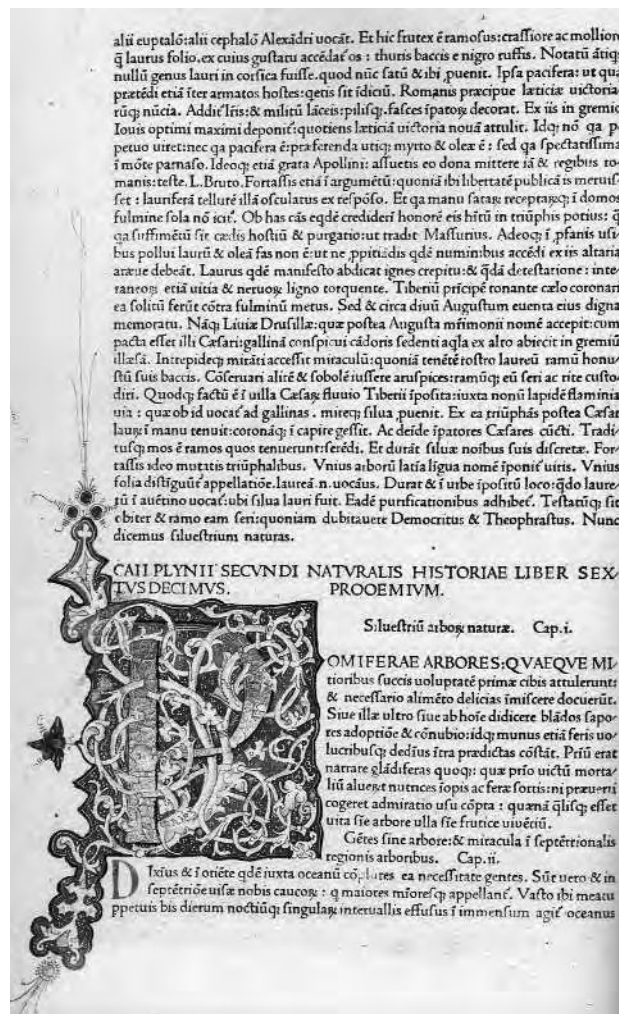 alii euptalō:alii cephalō Alexādri uocāt. Et hic frutex ē ramosus:crassiore ac molliore
q̄ laurus folio.ex cuius gustatu accēdat᷒ os : thuris baccis e nigro ruffis. Notatū ātiq;
nullū genus lauri in corsica fuisse.quod nūc satū & ibi ꝓuenit. Ipsa pacifera: ut qua
prætēdi etiā īter armatos hostes:qetis sit īdiciū. Romanis præcipue lætitiæ uictoria
rūq; nūcia. Addit᷒ Iris:& militū lāceis:pilisq;.fasces īpatoꝝ decorat. Ex iis in gremio
Iouis optimi maximi deponit᷒:quotiens lætitiā uictoria nouā attulit. Idq; nō qa p
petuo uiret:nec qa pacifera ē:præferenda utiq; myrto & oleæ ē : sed qa spectatissima
ī mōte parnaso. Ideoq; etiā grata Apollini: assuetis eo dona mittere iā & regibus ro-
manis:teste.L.Bruto.Fortassis etiā ī argumētū:quoniā ibi libertatē publicā is meruis-
set : lauriferā tellurē illā osculatus ex respōso. Et qa manu sataꝝ receptaꝝq; ī domos
fulmine sola nō icit᷒. Ob has cās eqdē credideri honorē eis hītū in triūphis potius: q̄
qa suffimētū sit cædis hostiū & purgatio:ut tradit Massurius. Adeoq; ī ꝓfanis usi-
bus pollui laurū & oleā fas non ē:ut ne ꝓpitiādis qdē numinibus accēdi ex iis altaria
aræue debeāt. Laurus qdē manifesto abdicat ignes crepitu:& q̄dā detestatione : inte-
raneoꝝ etiā uitia & neruoꝝ ligno torquente. Tiberiū prīcipē tonante cælo coronari
ea solitū ferūt cōtra fulminū metus. Sed & circa diuū Augustum euenta eius digna
memoratu. Nāq; Liuiæ Drusillæ:quæ postea Augusta mr̄imonii nomē accepit:cum
pacta esset illi Cæsari:gallinā conspicui cādoris sedenti aqla ex alto abiecit in gremiū
illæsā. Intrepideq; mirāti accessit miraculū:quoniā tenētē rostro laureū ramū honu-
stū suis baccis. Cōseruari alitē & sobolē iussere aruspices:ramūq; eū seri ac rite custo-
diri. Quodq; factū ē ī uilla Cæsaꝝ fluuio Tiberii īposita:iuxta nonū lapidē flaminia
uia : quæ ob id uocat᷒ ad gallinas . mireq; silua ꝓuenit. Ex ea triūphās postea Cæsar
lauꝝ ī manu tenuit:coronāq; ī capite gessit. Ac deīde īpatores Cæsares cūcti. Tradi-
tusq; mos ē ramos quos tenuerunt:serēdi. Et durāt siluæ noībus suis discretæ. For-
tassis ideo mutatis triūphalibus. Vnius arborū latīa līgua nomē īponit᷒ uiris. Vnius
folia distīguūt᷒ appellatiōe.laureā.n.uocāus. Durat & ī urbe īpositū loco:qdo laure-
tū ī auētino uocat᷒:ubi silua lauri fuit. Eadē purificationibus adhibet᷒. Testatūq; sit
obiter & ramo eam seri:quoniam dubitauere Democritus & Theophrastus. Nunc
dicemus siluestrium naturas.
CAII PLYNII SECVNDI NATVRALIS HISTORIAE LIBER SEX-
TVS DECIMVS. PROOEMIVM.
Siluestriū arboꝝ naturæ. Cap.i.
POMIFERAE ARBORES:QVAEQVE MI-
tioribus succis uoluptatē primæ cibis attulerunt:
& necessario alimēto delicias īmiscere docuerūt.
Siue illæ ultro siue ab hoīe didicere blādos sapo-
res adoptiōe & cōnubio:idq; munus etiā feris uo-
lucribusq; dediīus ītra prædictas cōstāt. Priū erat
narrare glādiferas quoq;: quæ prīo uictū morta-
liū alueꝝt nutrices īopis ac feræ sortis:ni præuerti
cogeret admiratio usu cōpta : quænā q̄lisq; esset
uita sīe arbore ulla sīe frutice uiuētiū.
Gētes sine arbore:& miracula ī septētrionalis
regionis arboribus. Cap.ii.
Dīxius & ī oriēte qdē iuxta oceanū cōplures ea necessitate gentes. Sūt uero & in
septētriōe uisæ nobis caucoꝝ : q maiores mīoresq; appellant᷒. Vasto ibi meatu
ppetuis bis dierum noctiūq; singulaꝝ interuallis effusus ī immensum agit᷒ oceanus